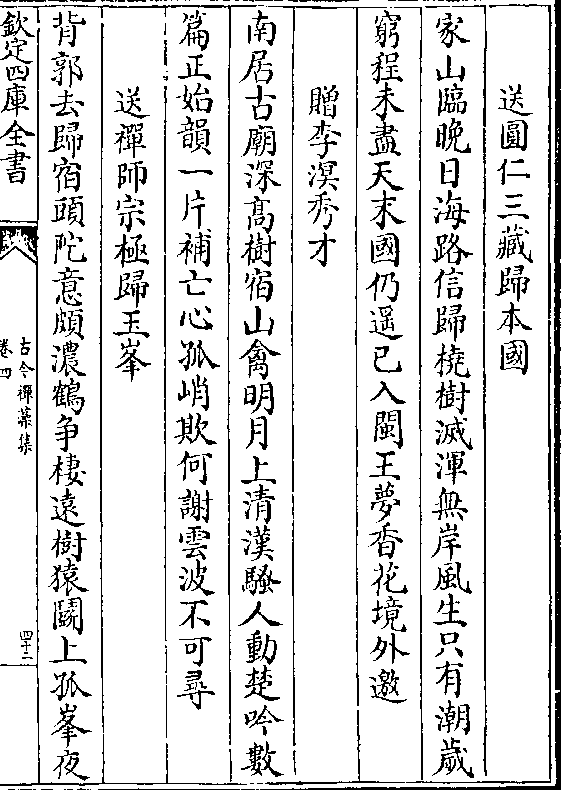 送圓仁三藏歸本國
家山臨晚日海路信歸橈樹滅渾無岸風生只有潮歲
窮程未盡天末國仍遥已入閩王夢香花境外邀
贈李溟秀才
南居古廟深髙樹宿山禽明月上清漢騷人動楚吟數
篇正始韻一片補亡心孤峭欺何謝雲波不可尋
送禪師宗極歸玉峯
背郭去歸宿頭陀意頗濃鶴争棲逺樹猿鬭上孤峯夜
欽定四庫全書
古今禪藻集
卷四
四十二